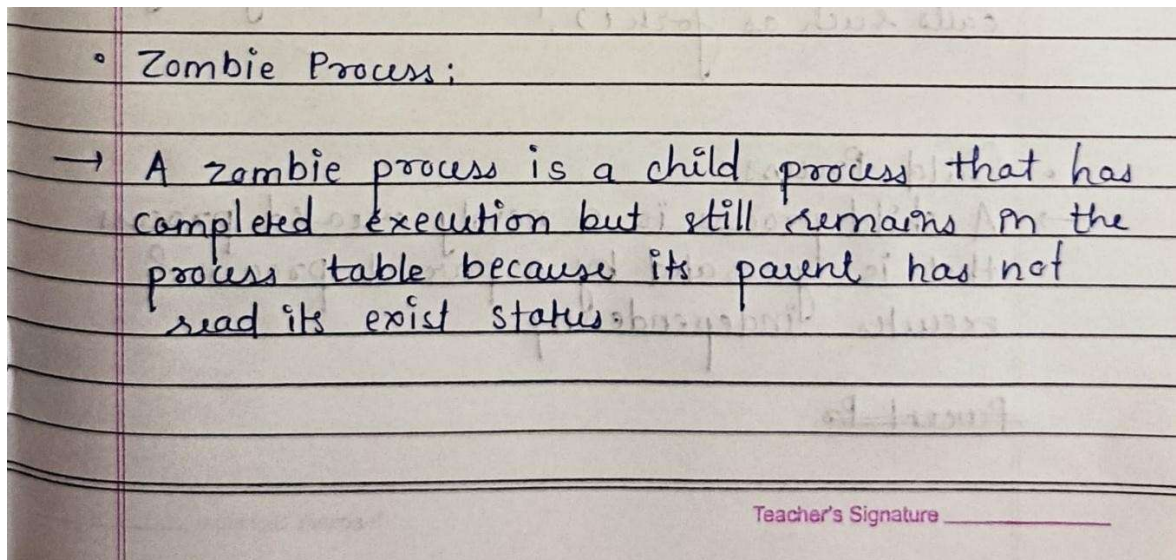 • Zombie Process:
→ A zombie process is a child process that has
completed execution but still remains in the
process table because its parent has not
read its exist status.
Teacher's Signature